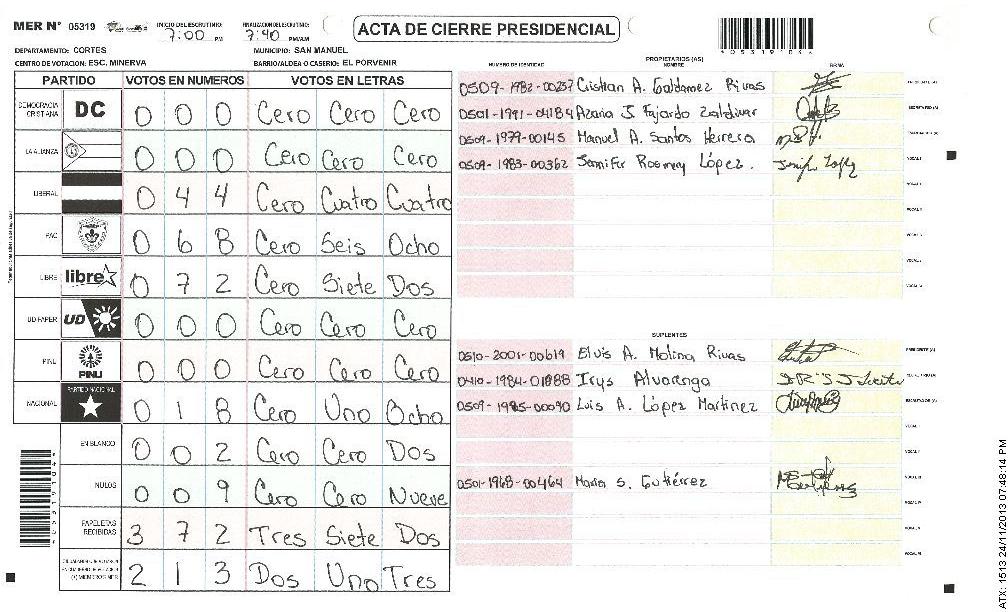 MER N° 05319 INICIO DEL ESCRUTINIO: 7:00 PM FINALIZACION ESCRUTINIO: 7:40 PM/AM ACTA DE CIERRE PRESIDENCIAL
DEPARTAMENTO: CORTES MUNICIPIO: SAN MANUEL
CENTRO DE VOTACION: ESC. MINERVA BARRIO/ALDEA O CASERIO: EL PORVENIR
PARTIDO VOTOS EN NUMEROS VOTOS EN LETRAS
DEMOCRACIA CRISTIANA DC 0 0 0 Cero Cero Cero
LA ALIANZA 0 0 0 Cero Cero Cero
LIBERAL 0 4 4 Cero Cuatro Cuatro
PAC 0 6 8 Cero Seis Ocho
LIBRE libre 0 7 2 Cero Siete Dos
UD FAPER UD 0 0 0 Cero Cero Cero
PINU PINU 0 0 0 Cero Cero Cero
NACIONAL PARTIDO NACIONAL 0 1 8 Cero Uno Ocho
EN BLANCO 0 0 2 Cero Cero Dos
NULOS 0 0 9 Cero Cero Nueve
PAPELETAS RECIBIDAS 3 7 2 Tres Siete Dos
(+) MIEMBROS MER 2 1 3 Dos Uno Tres
PROPIETARIOS (AS)
NUMERO DE IDENTIDAD NOMBRE FIRMA
0509-1982-00257 Cistian A. Galdamez Rivas
0501-1991-04184 Azaria J. Fajardo Zaldivar
0509-1979-00145 Manuel A. Santos Herrera
0509-1983-00362 Jennifer Rosmery López. VOCAL I
VOCAL II
SUPLENTES
0510-2001-00619 Elvis A. Molina Rivas PRESIDENTE (A)
0410-1984-01088 Irys Alvarenga
0509-1985-00090 Luis A. López Martinez
0501-1968-00464 Maria S. Gutiérrez
ATX: 1513 24/11/2013 07:48:14 PM